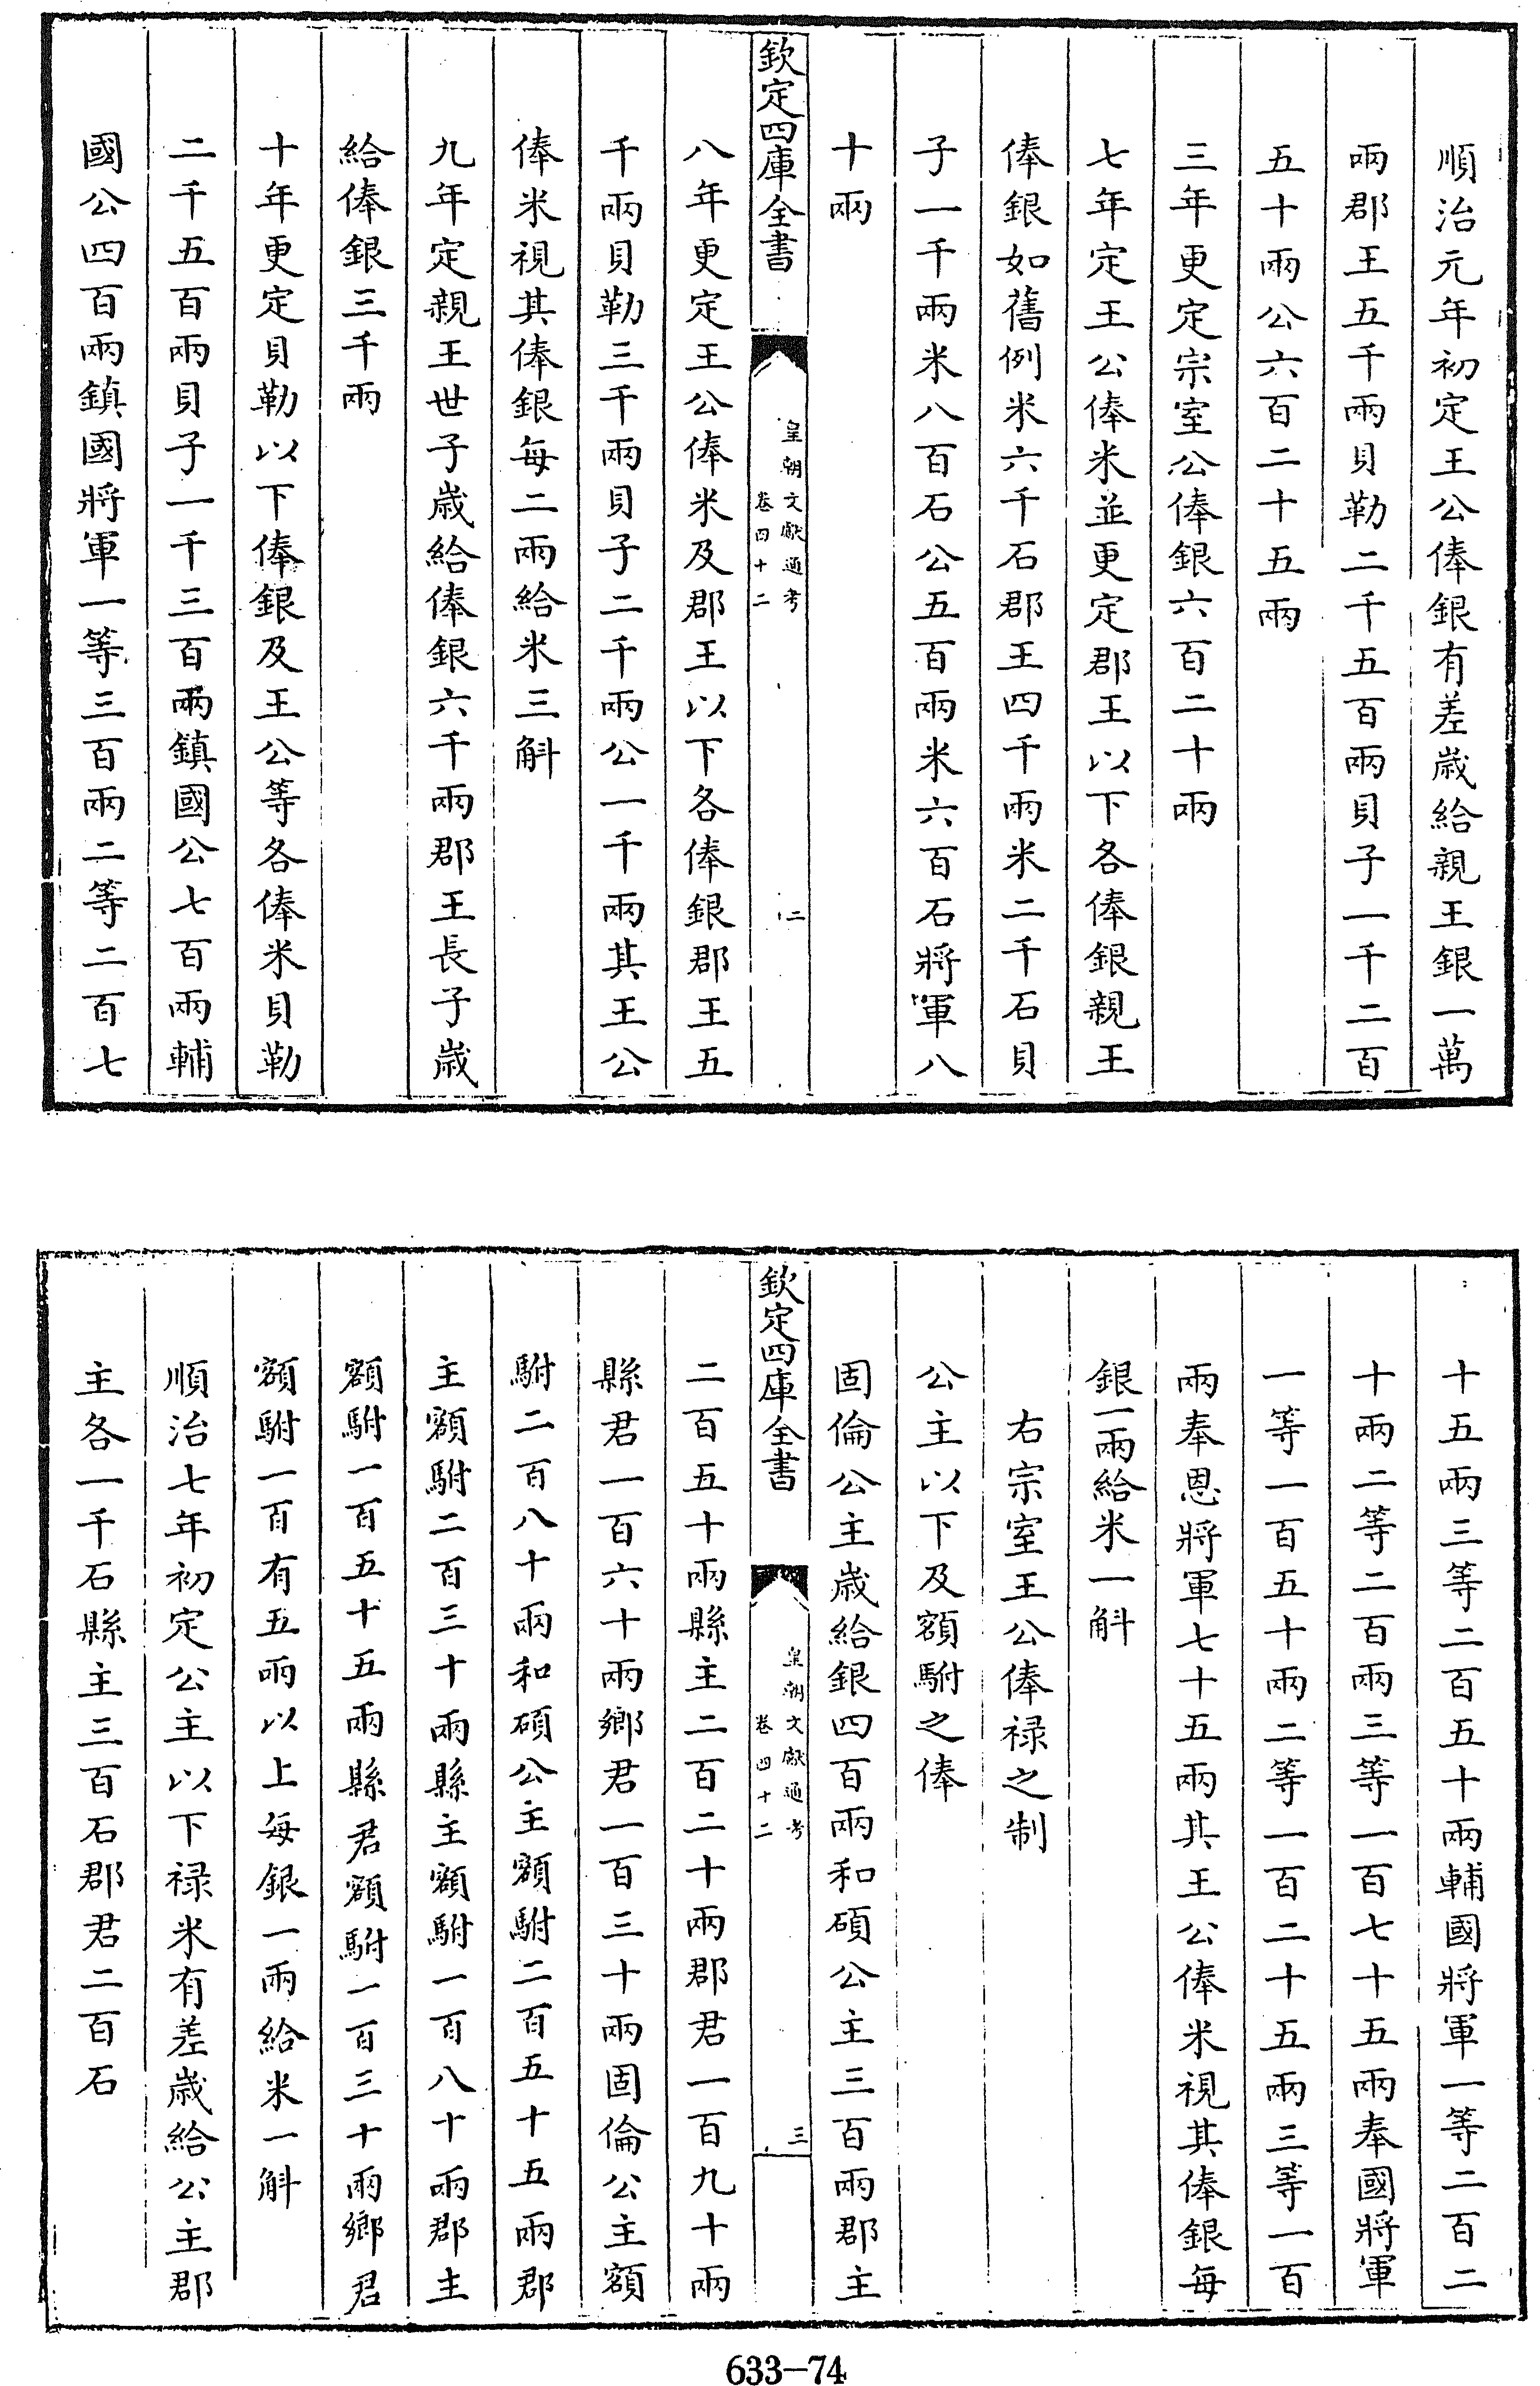 順治元年初定王公俸銀有差歲給親王銀一萬
兩郡王五千兩貝勒二千五百兩貝子一千二百
五十兩公六百二十五兩
三年更定宗室公俸銀六百二十兩
七年定王公俸米並更定郡王以下各俸銀親王
俸銀如舊例米六千石郡王四千兩米二千石貝
子一千兩米八百石公五百兩米六百石將軍八
十兩
欽定四庫全書
皇朝文獻通考
卷四十二
二
八年更定王公俸米及郡王以下各俸銀郡王五
千兩貝勒三千兩貝子二千兩公一千兩其王公
俸米視其俸銀每二兩給米三斛
九年定親王世子歲給俸銀六千兩郡王長子歲
給俸銀三千兩
十年更定貝勒以下俸銀及王公等各俸米貝勒
二千五百兩貝子一千三百兩鎮國公七百兩輔
國公四百兩鎮國將軍一等三百兩二等二百七
十五兩三等二百五十兩輔國將軍一等二百二
十兩二等二百兩三等一百七十五兩奉國將軍
一等一百五十兩二等一百二十五兩三等一百
兩奉恩將軍七十五兩其王公俸米視其俸銀每
銀一兩給米一斛
右宗室王公俸祿之制
公主以下及額駙之俸
固倫公主歲給銀四百兩和碩公主三百兩郡主
欽定四庫全書
皇朝文獻通考
卷四十二
三
二百五十兩縣主二百二十兩郡君一百九十兩
縣君一百六十兩鄉君一百三十兩固倫公主額
駙二百八十兩和碩公主額駙二百五十五兩郡
主額駙二百三十兩縣主額駙一百八十兩郡主
額駙一百五十五兩縣君額駙一百三十兩鄉君
額駙一百有五兩以上每銀一兩給米一斛
順治七年初定公主以下祿米有差歲給公主郡
主各一千石縣主三百石郡君二百石
633-74